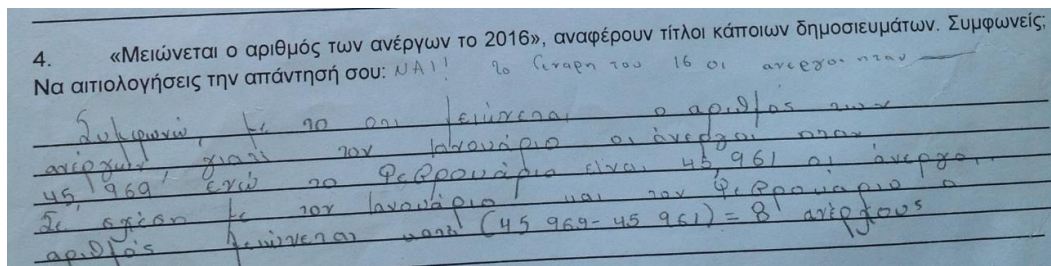 4. «Μειώνεται ο αριθμός των ανέργων το 2016», αναφέρουν τίτλοι κάποιων δημοσιευμάτων. Συμφωνείς;
Να αιτιολογήσεις την απάντησή σου: ΝΑΙ! το Γεναρη του 16 οι ανεργοι ηταν
Συμφωνώ, με το οτι μειώνεται ο αριθμός των
ανέργων, γιατί τον Ιανουάριο οι άνεργοι ηταν
45 969 ενώ το Φεβρουάριο είναι 45,961 οι άνεργοι.
Σε σχέση με τον Ιανουάριο και τον Φεβρουάριο ο
αριθμός μειώνεται κατά (45 969-45 961) = 8 ανέργους